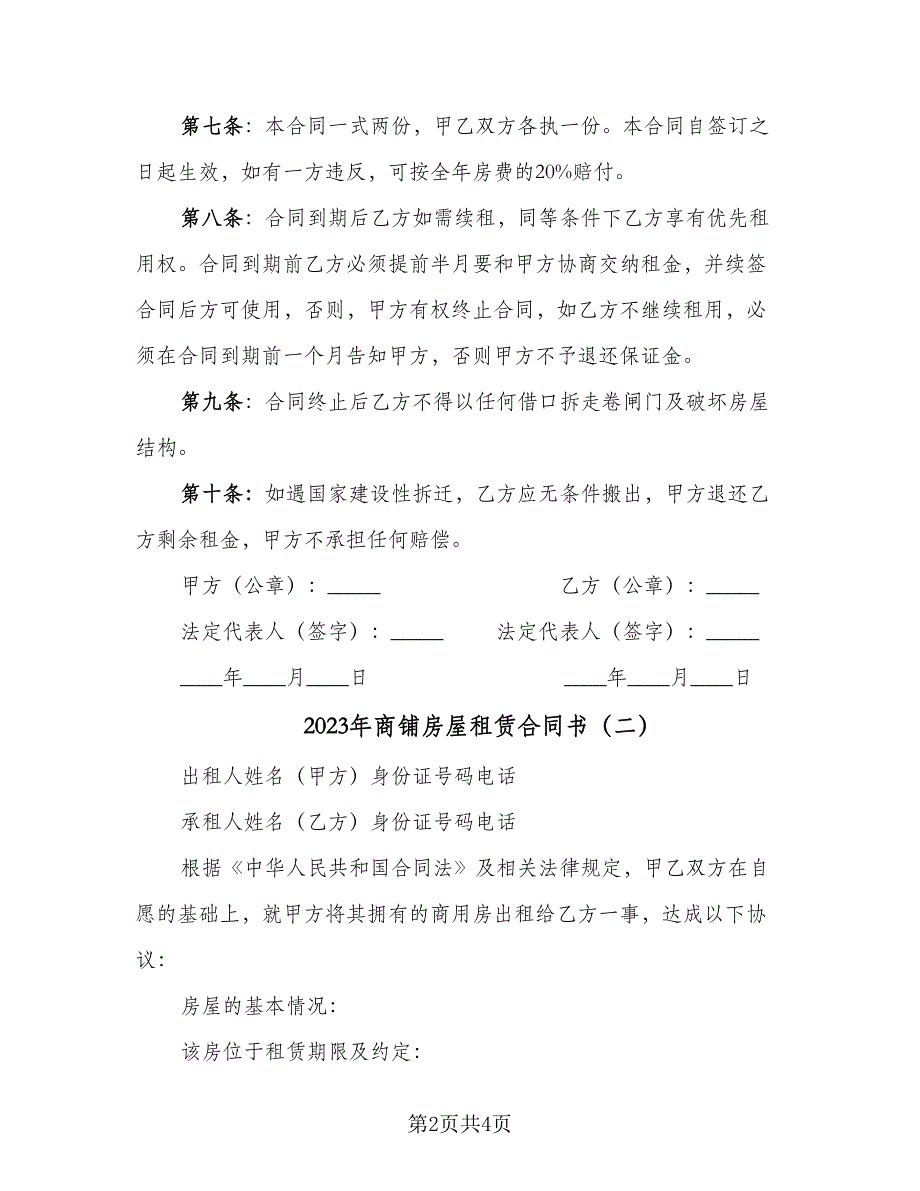 第七条：本合同一式两份，甲乙双方各执一份。本合同自签订之
日起生效，如有一方违反，可按全年房费的20%赔付。
第八条：合同到期后乙方如需续租，同等条件下乙方享有优先租
用权。合同到期前乙方必须提前半月要和甲方协商交纳租金，并续签
合同后方可使用，否则，甲方有权终止合同，如乙方不继续租用，必
须在合同到期前一个月告知甲方，否则甲方不予退还保证金。
第九条：合同终止后乙方不得以任何借口拆走卷闸门及破坏房屋
结构。
第十条：如遇国家建设性拆迁，乙方应无条件搬出，甲方退还乙
方剩余租金，甲方不承担任何赔偿。
甲方（公章）：_____ 乙方（公章）：_____
法定代表人（签字）：_____ 法定代表人（签字）：_____
____年____月____日 ____年____月____日
2023年商铺房屋租赁合同书（二）
出租人姓名（甲方）身份证号码电话
承租人姓名（乙方）身份证号码电话
根据《中华人民共和国合同法》及相关法律规定，甲乙双方在自
愿的基础上，就甲方将其拥有的商用房出租给乙方一事，达成以下协
议：
房屋的基本情况：
该房位于租赁期限及约定：
第2页共4页